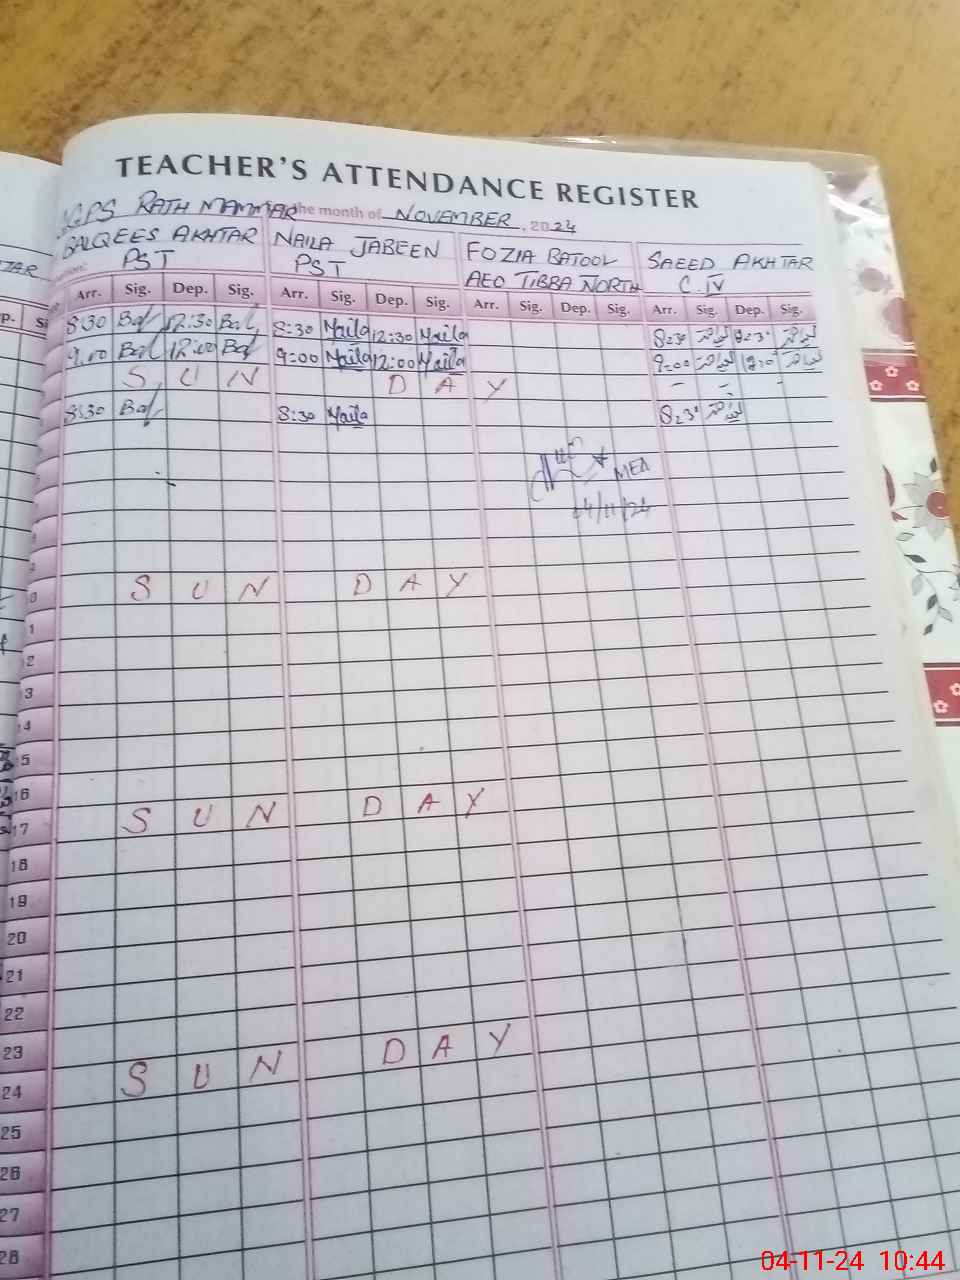 TEACHER'S ATTENDANCE REGISTER
GPS RATH MAMMAR the month of NOVEMBER, 2024
BALQEES AKHTAR NAILA JABEEN FOZIA BATOOL SAEED AKHTAR
PST PST AEO TIBBA NORTH C.IV
Arr. Sig. Dep. Sig. Arr. Sig. Dep. Sig. Arr. Sig. Dep. Sig. Arr. Sig. Dep. Sig.
8:30 Bal 12:30 Bal 8:30 Naila 12:30 Naila
9.00 Bal 12:00 Bal 9:00 Naila 12:00 Naila
S U N D A Y
8:30 Bal 8:30 Naila
MEA
04/11/24
S U N D A Y
16
S U N D A Y
17
18
19
20
21
22
23
S U N D A Y
24
25
26
27
28
04-11-24 10:44